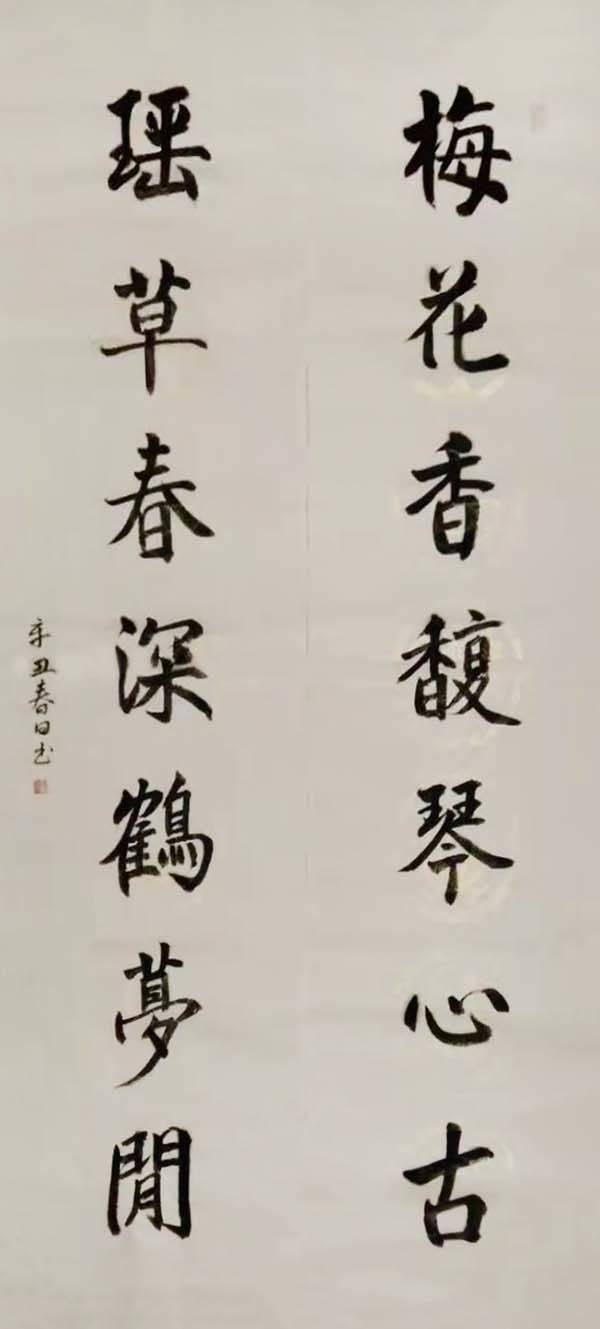 梅花香馥琴心古
瑶草春深鶴夢閒
辛丑春日书